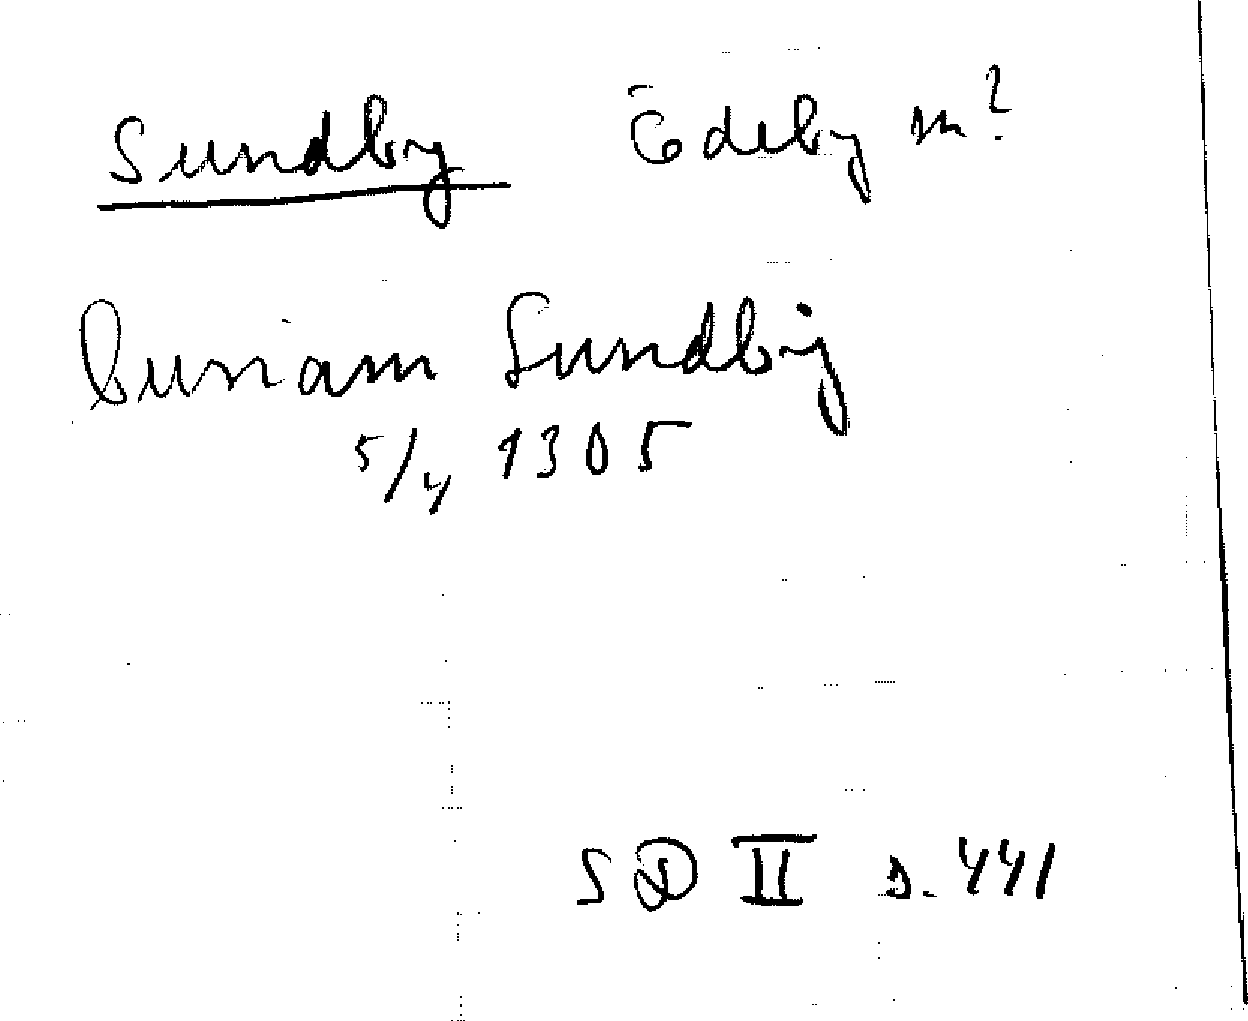 Sundby Edeby sn?
curiam Sundby
5/4 1305
SD II s. 441